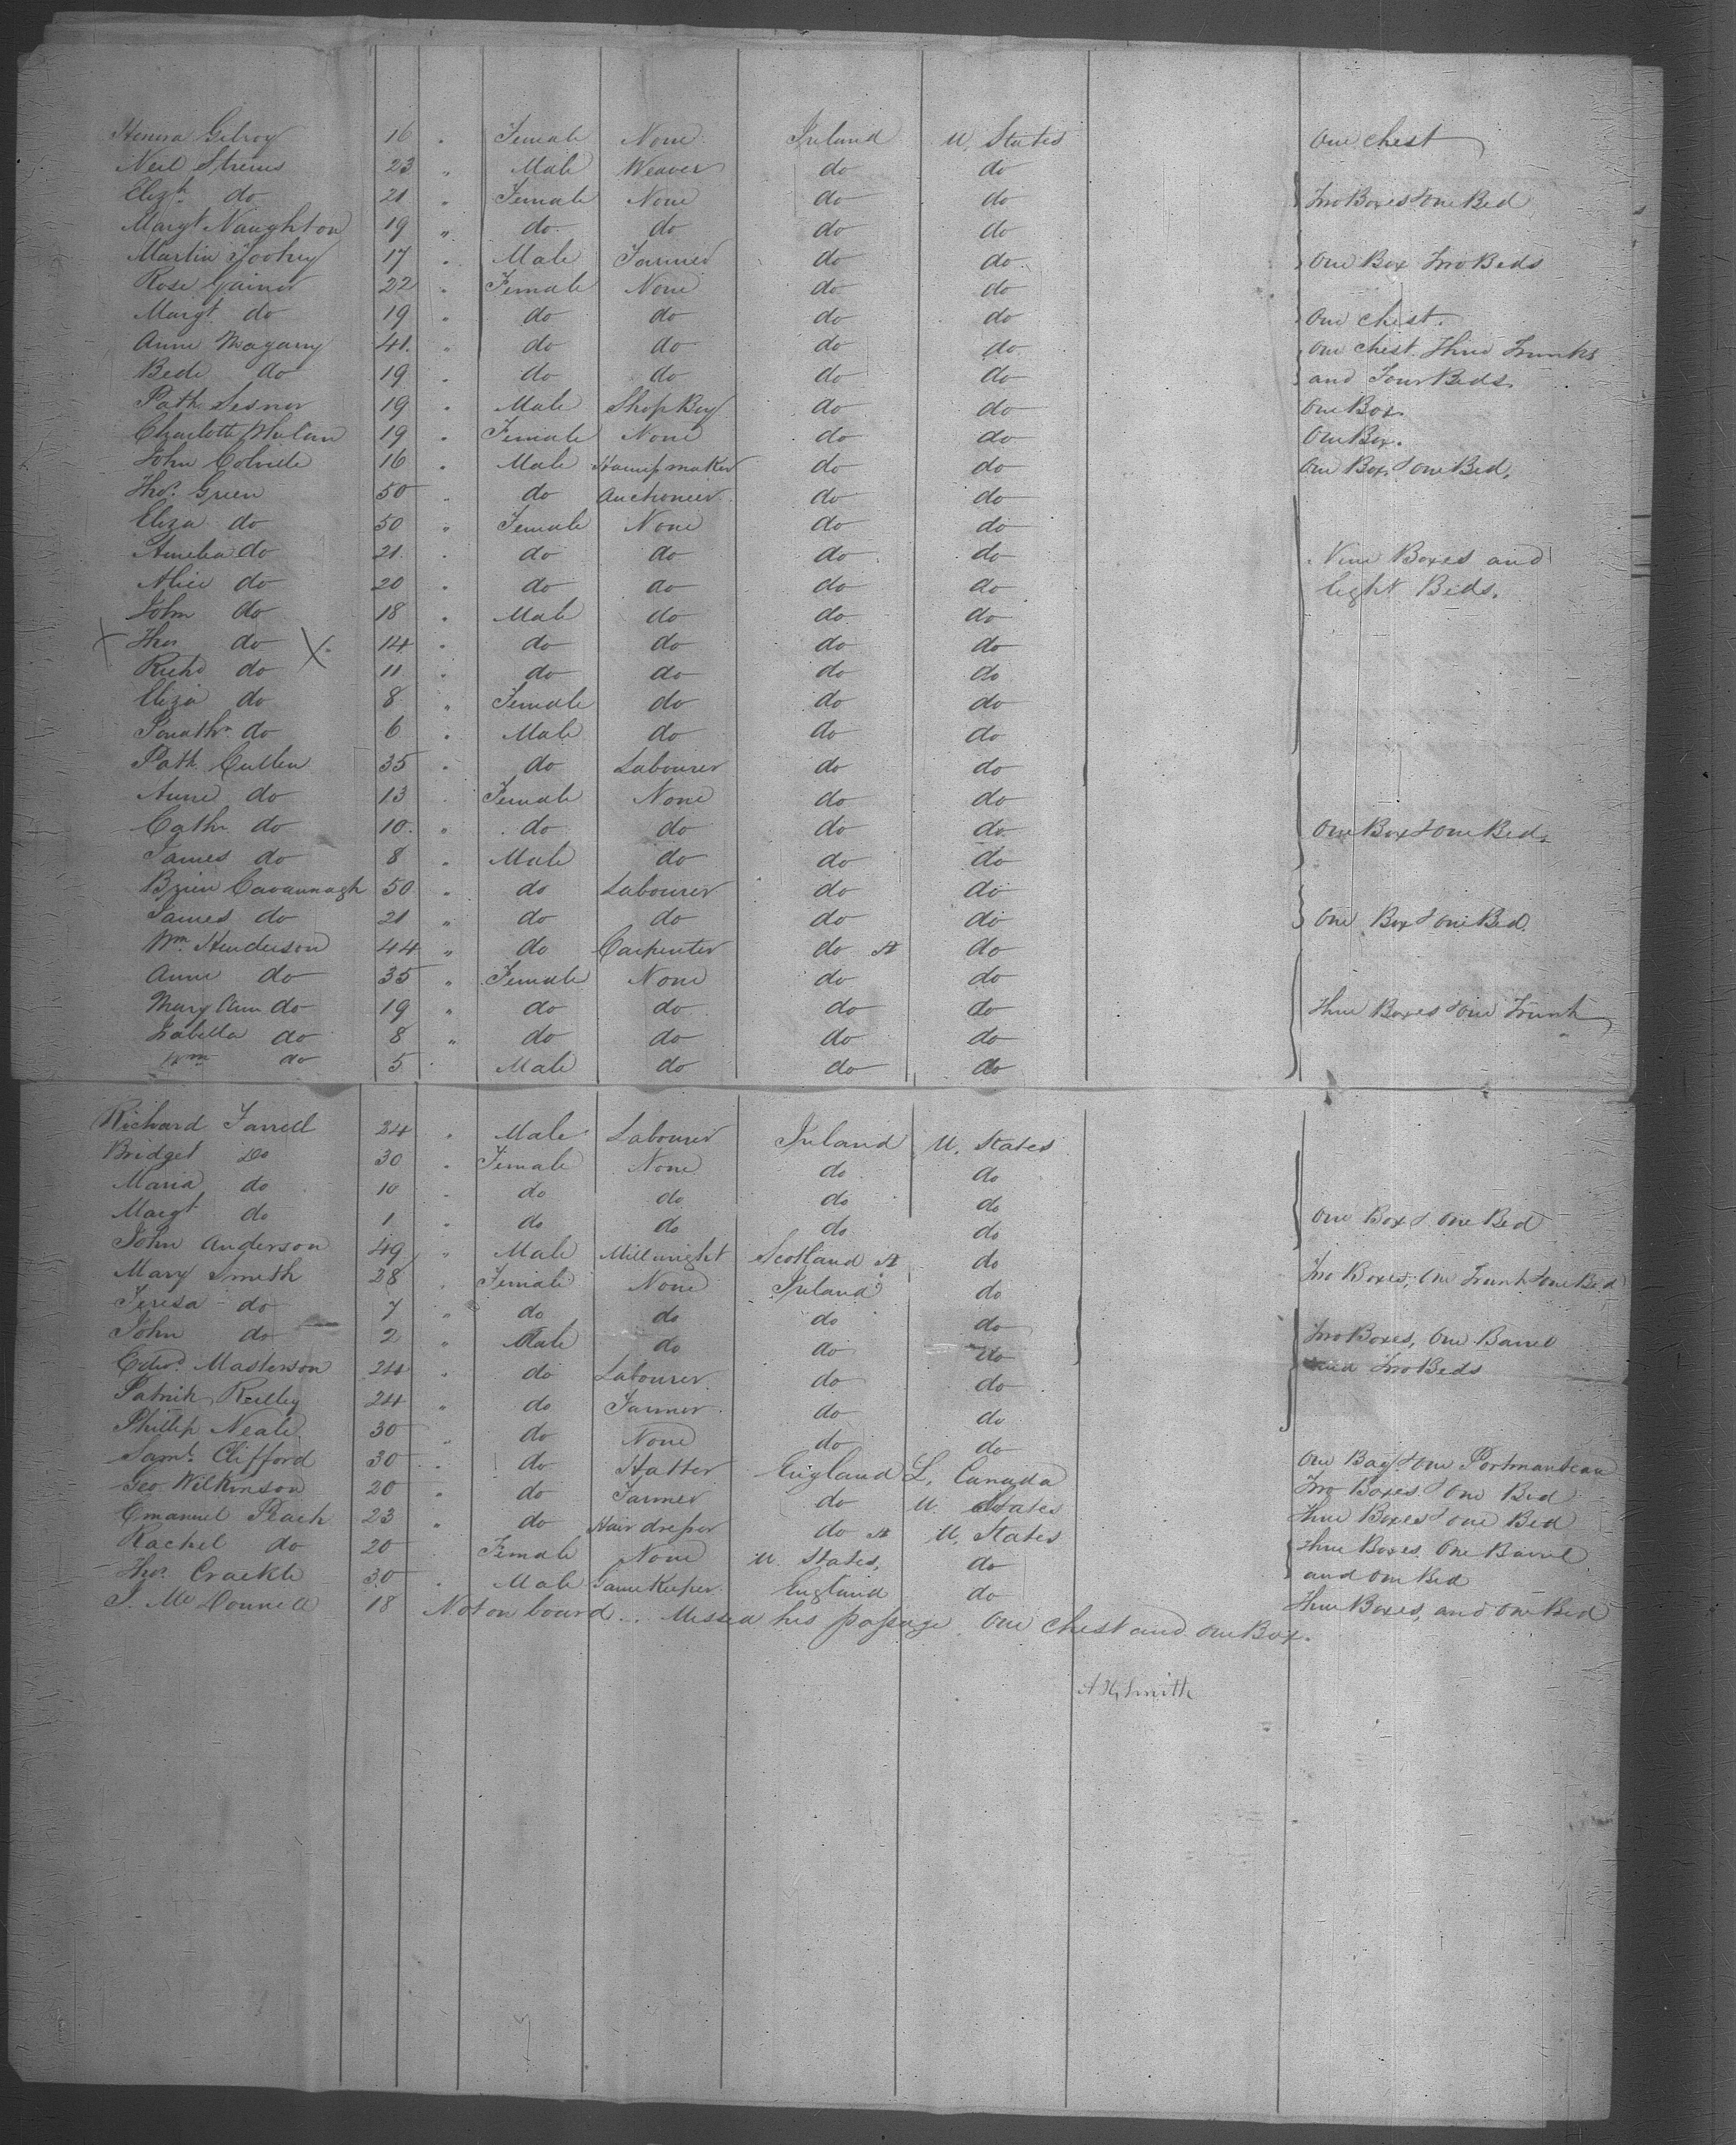 Honora Gilroy 16 " Female None Ireland U. States One Chest
Neil 23 " Male Weaver do do
Elizh do 21 " Female None do do Two Boxes & One Bed
Margt Naughton 19 " do do do do
Martin 17 " Male Farmer do do One Box Two Beds
Rose Gainor 22 " Female None do do
Margt do 19 " do do do do One Chest.
Anne Magarry 41 " do do do do One Chest Three Trunks
Bede do 19 " do do do do and Four Beds.
Path 19 " Male Shop Boy do do One Box.
Charlotte Whelan 19 " Female None do do One Box.
John Colville 16 " Male maker do do One Box & One Bed.
Thos. Green 50 " do Auctioneer do do
Eliza do 50 " Female None do do
Amelia do 21 " do do do do Nine Boxes and
Alice do 20 " do do do do Eight Beds.
John do 18 " Male do do do
X Thos do X 14 " do do do do
Richd do 11 " do do do do
Eliza do 8 " Female do do do
Jonathn do 6 " Male do do do
Path Cullen 35 " do Labourer do do
Anne do 13 " Female None do do
Cathn do 10 " do do do do One Box & One Bed.
James do 8 " Male do do do
Brien Cavannagh 50 " do Labourer do do
James do 21 " do do do do One Box & One Bed.
Wm Henderson 44 " do Carpenter do St do
Anne do 35 " Female None do do
Mary Ann do 19 " do do do do Three Boxes & One Trunk
Isabella do 8 " do do do do
Wm do 5 " Male do do do
Richard Farrell 34 " Male Labourer Ireland U. States
Bridget Do 30 " Female None do do
Maria do 10 " do do do do
Margt do 1 " do do do do One Box & One Bed
John Anderson 49 " Male Millwright Scotland St do
Mary Smith 28 " Female None Ireland do Two Boxes, One Trunk & One Bed
Teresa do 7 " do do do do
John do 2 " Male do do do Two Boxes, One Barrel
Edwd. Masterson 24 " do Labourer do do and Two Beds
Patrick Reilley 24 " do Farmer do do
Phillip Neale 30 " do None do do
Saml. Clifford 30 " do Hatter England L. Canada One Bag & One Portmanteau
Geo. Wilkinson 20 " do Farmer do U. States Two Boxes & One Bed
Emanuel Peach 23 " do Hair dresser do St U. States Three Boxes & One Bed
Rachel do 20 " Female None U. States, do Three Boxes One Barrel
Thos. Crackle 30 " Male Game Keeper England do and One Bed
J. McDonnell 18 Not on board... Missed his passage. One Chest and One Box. Three Boxes, and One Bed
A H Smith